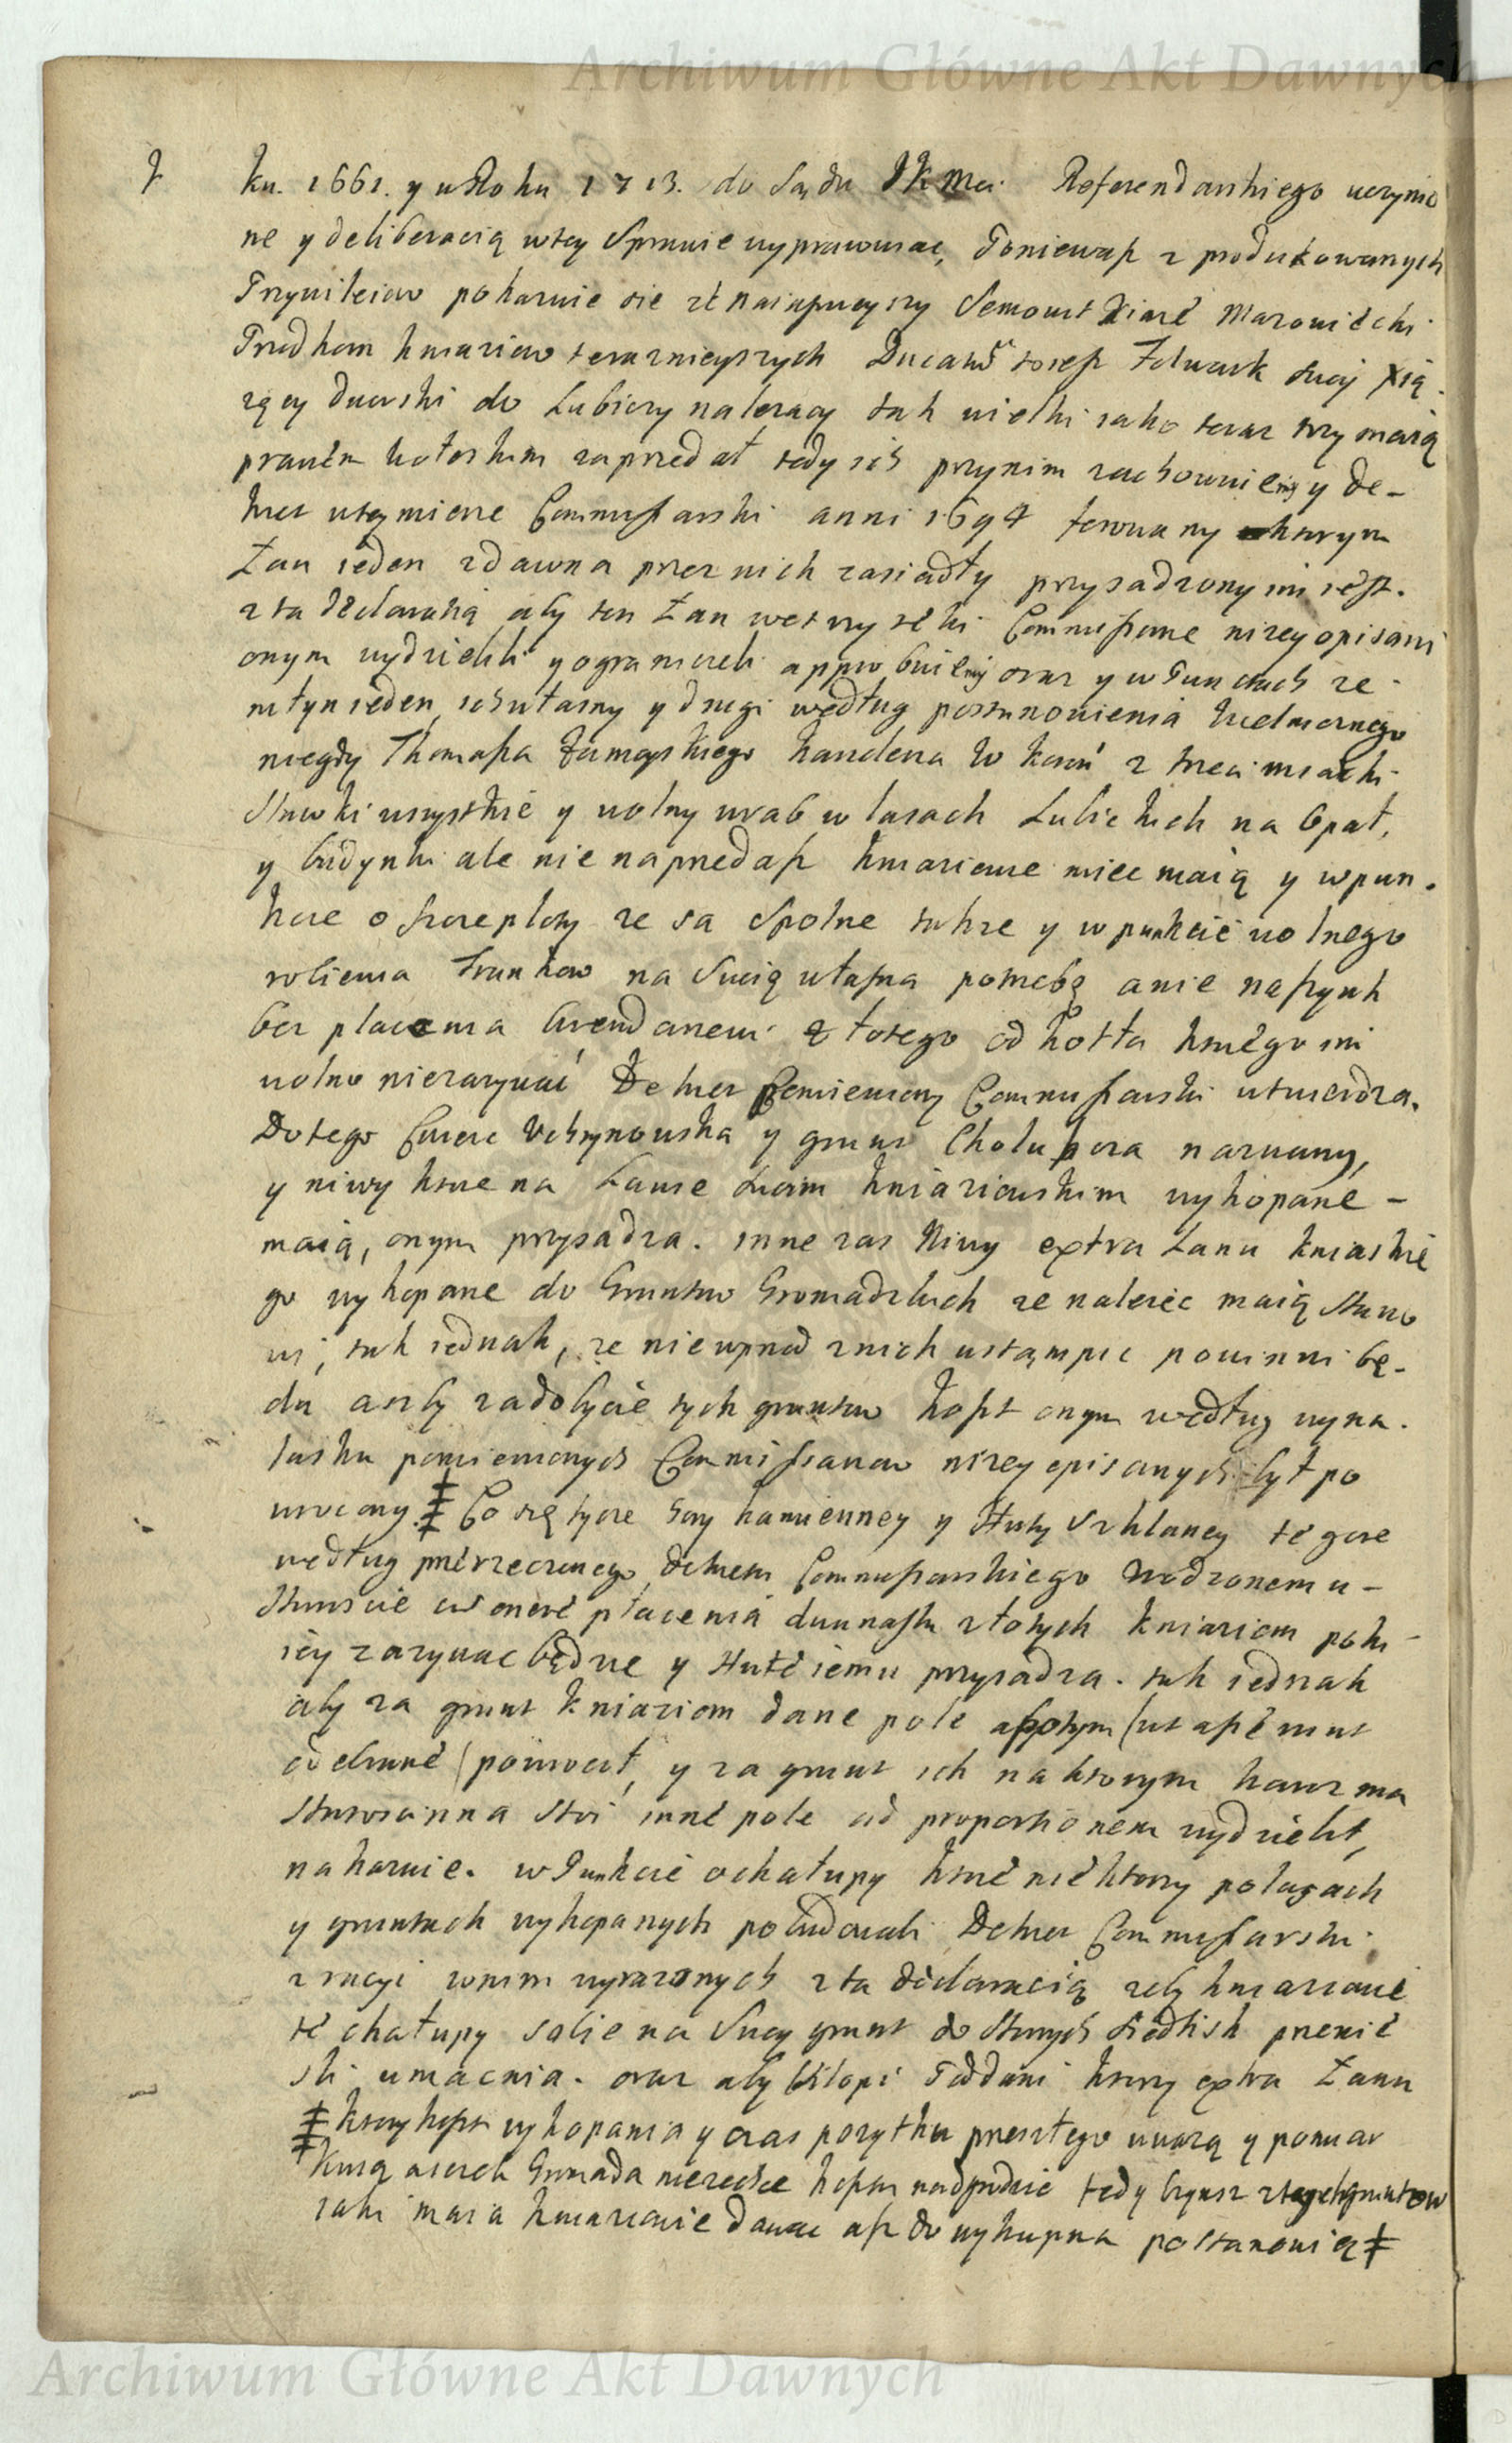 Archiwum Główne Akt Dawnych
ku. 1661. y w Roku 1713. do Sądu JKMci Referendarskiego uczynio
ne y deliberacią w tey Sprawie wyprawuiąc, Poniewasz z produkowanych
Przywileiow pokazuie sie ze Naiasznieyszy Semowit Xiąże Mazowiecki
Przodkom kniaziow teraznieyszych tosiesz Folwark swoy Xią
zęcy dworski do Lubiczy nalezący tak wielki iako teraz trzymaią
prawem wołoskim zaprzedał tedy ich przy nim zachowuiemy y de-
kret wteymierze Commissarski anni 1694 ferowany w ktorym
Łan ieden zdawna przez nich zasiadły przysadzony im iest.
z ta deklaracią aby ten Łan wetrzy Commissarze nizey opisani
onym wydzielili y ograniczeli approbuiemy oraz y w Punctach ze
młyn ieden ich własny y drugi według postanowienia Wielmoznego
niegdy Thomasza Zamoyskiego Kanclerza W Kor z trzecimi miarki
Stawki wszystkie y wolny wrąb w lasach Lubickich na Opał,
y budynki ale nie naprzedasz kniaziowie miec maią y w pun.
kcie o ze sa Spolne takze y w punkcie wolnego
robienia Trunkow na Swoią własna potrzebę a nie naszynk
bez placenia Arendarzowi złotego od kotła ktorego im
wolno niezazywać Dekret Pomieniony Commissarski utwierdza.
Do tego y grunt nazwany,
y niwy ktore na Łanie swoim kniaziowskim wykopane -
maią, onym przysadza. inne zas Niwy extra Łanu kniaskie
go wykopane do Gruntow Gromadzkich ze nalezec maią stano
wi, tak iednak, ze nie wprzod z nich ustąmpic powinni bę-
da aszby zadobycie tych gruntow koszt onym według wyna.
lasku pomienionych Commissarzow nizey opisanych był po
wrocony. ‡ Co się tycze Gory kamienney y Huty Szklaney te gore
według przerzeczonego Dekretu Commissarskiego Urodzonemu -
Staroscie cum onere płacenia dwunastu złotych kniaziom poki
iey zazywac będzie y Hute iemu przysadza. tak iednak
aby za grunt kniaziom dane pole a potym (ut asserunt
odebrane) powrocił, y za grunt ich na ktorym karczma
Starosciнna stoi inne pole ad proportionem wydzielił,
nakazuie. w Punkcie o chałupy ktore niektorzy po lasach
y gruntach wykopanych pobudowali Dekret Commissarski
z racyi w nim wyrazonych z ta deklaracią zeby kniaziowie
te chałupy sobie na Swoy grunt do Starych Siedlisk przenie
sli umacnia. oraz aby Chłopi Poddani ktorzy extra Łanu
‡ ktory koszt wykopania y czas pozytku przeszłego uwazą y pomiar
kuią a iezeli Gromada niezechce kosztu tedy czynsz z tych gruntow
iaki maia kniaziowie dawac asz do wykupna postanowią ‡
Archiwum Główne Akt Dawnych